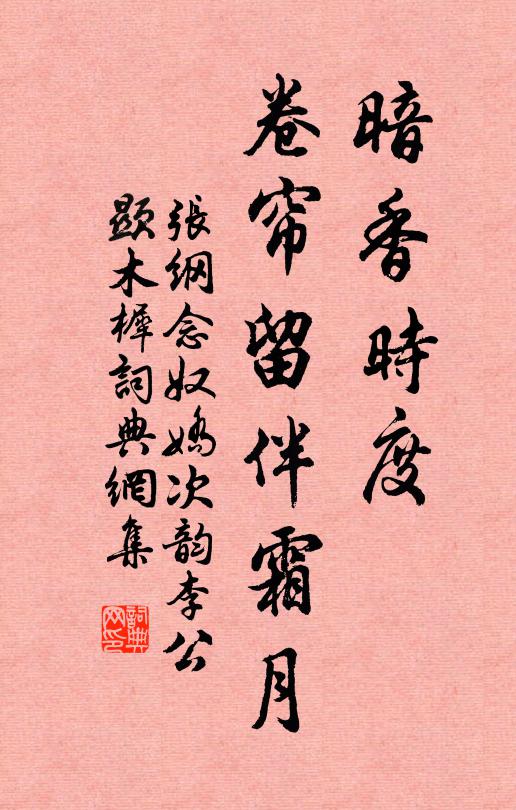 暗香時度
卷帘留伴霜月
張綱念奴嬌次韵李公
顯木樨詞典網集
詞典
网印